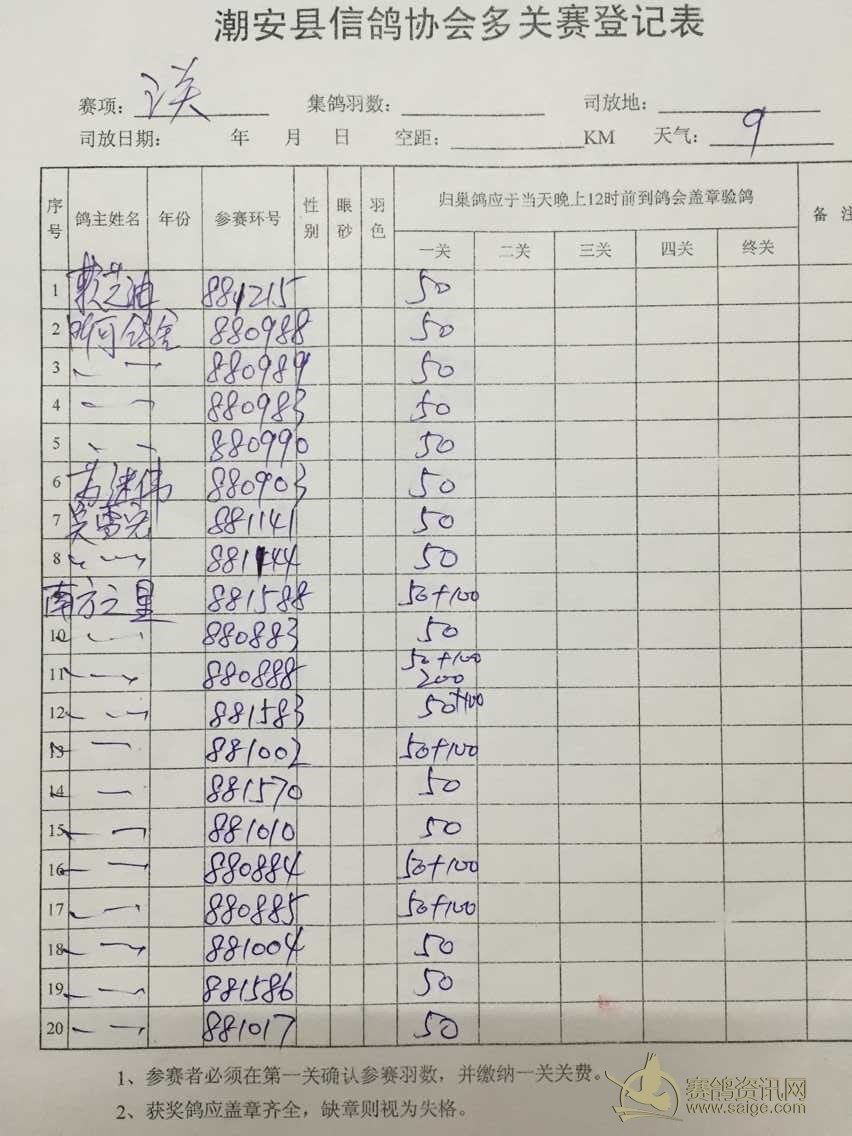 潮安县信鸽协会多关赛登记表
赛项: 集鸽羽数: 司放地:
司放日期: 年 月 日 空距: KM 天气: 9
序号 鸽主姓名 年份 参赛环号 性别 眼砂 羽色 归巢鸽应于当天晚上12时前到鸽会盖章验鸽 备 注
一关 二关 三关 四关 终关
1 881215 50
2 880988 50
3 880989 50
4 880983 50
5 880990 50
6 880903 50
7 881141 50
8 881144 50
南方之星 881588 50+100
10 880883 50
11 880888 50+100 200
12 881583 50+100
13 881002 50+100
14 881570 50
15 881010 50
16 880884 50+100
17 880885 50+100
18 881004 50
19 881586 50
20 881017 50
1、参赛者必须在第一关确认参赛羽数，并缴纳一关关费。
2、获奖鸽应盖章齐全，缺章则视为失格。
赛鸽资讯网
www.saige.com